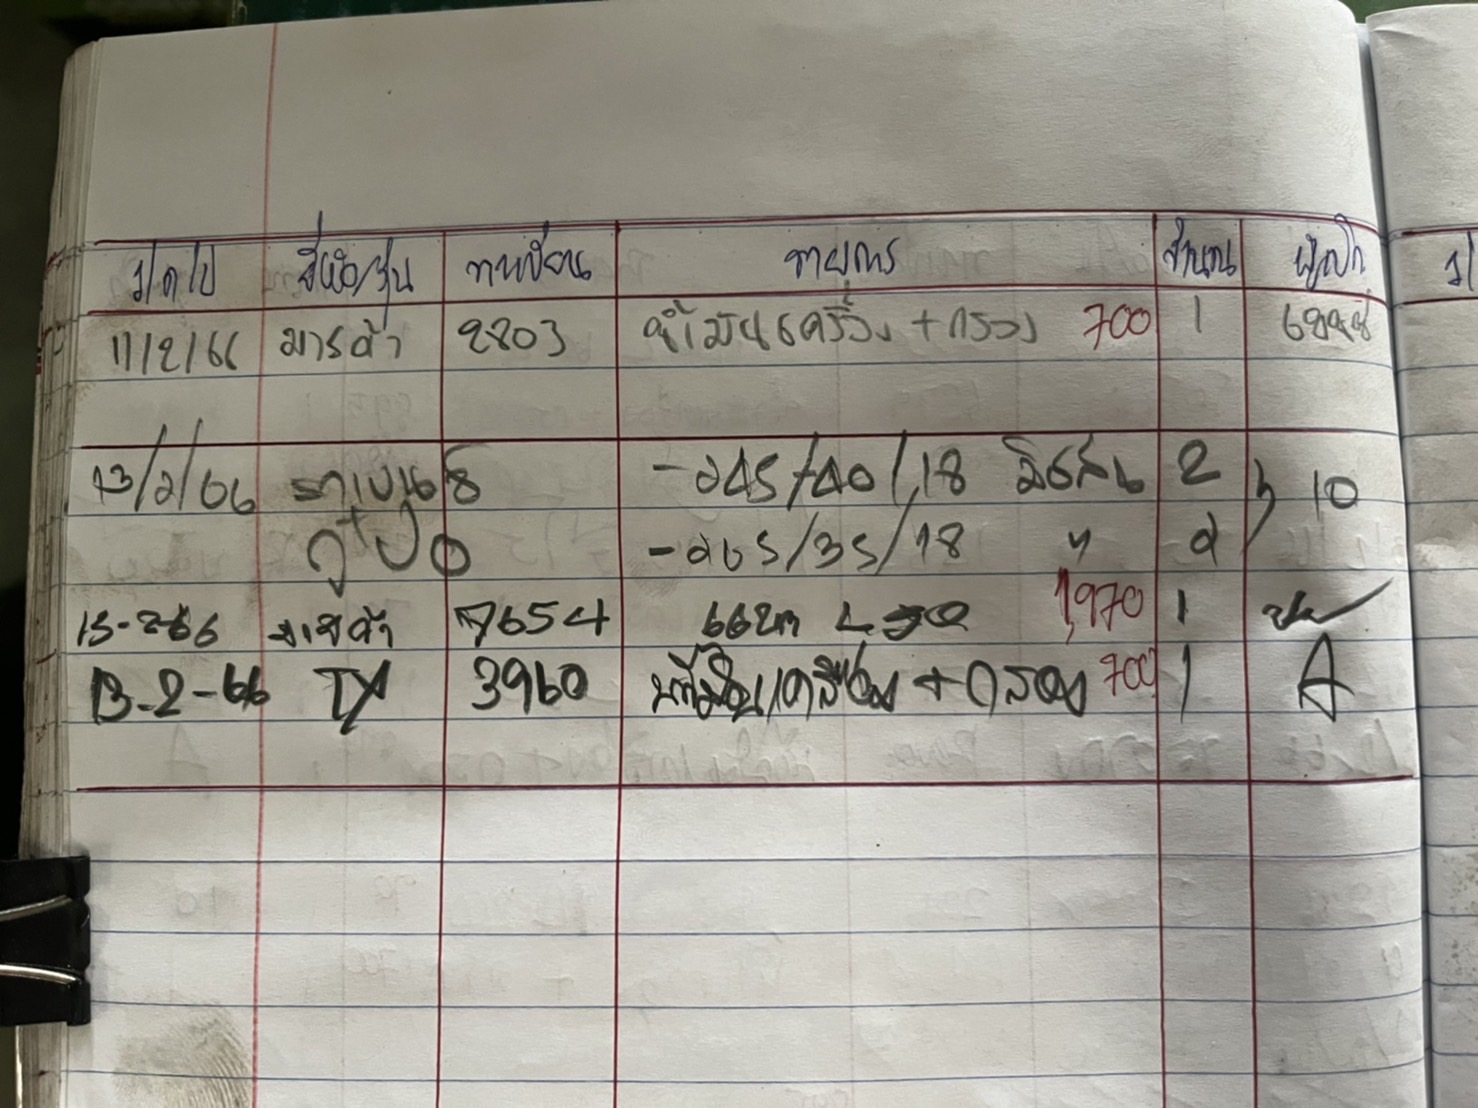 ว/ด/ป ยี่ห้อ/รุ่น ทะเบียน รายการ จำนวน ผู้เบิก
11/2/66 มาสด้า 2803 น้ำมันเครื่อง + กรอง 700 1
13/2/66 -245/40/18 มิชลิน 2 10
-265/35/18 " 2
15-2-66 มาสด้า 7654 แบต 1,970 1
13-2-66 3960 น้ำมันเครื่อง + กรอง 700 1 A